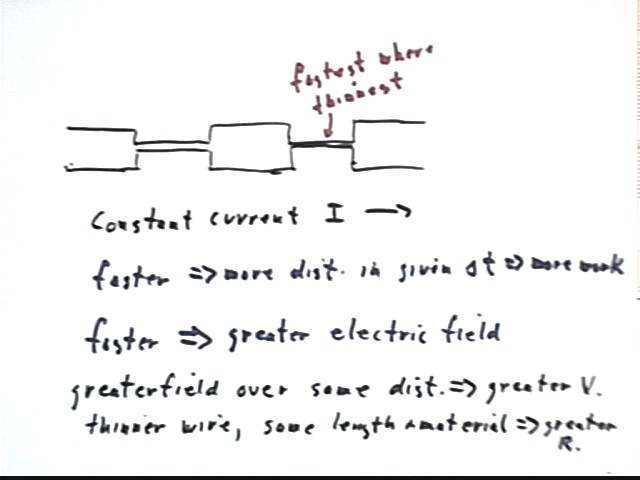 fastest where
thinnest
Constant current I →
faster => more dist. in given Δt => more work
faster => greater electric field
greater field over same dist. => greater V.
thinner wire, same length & material => greater
R.